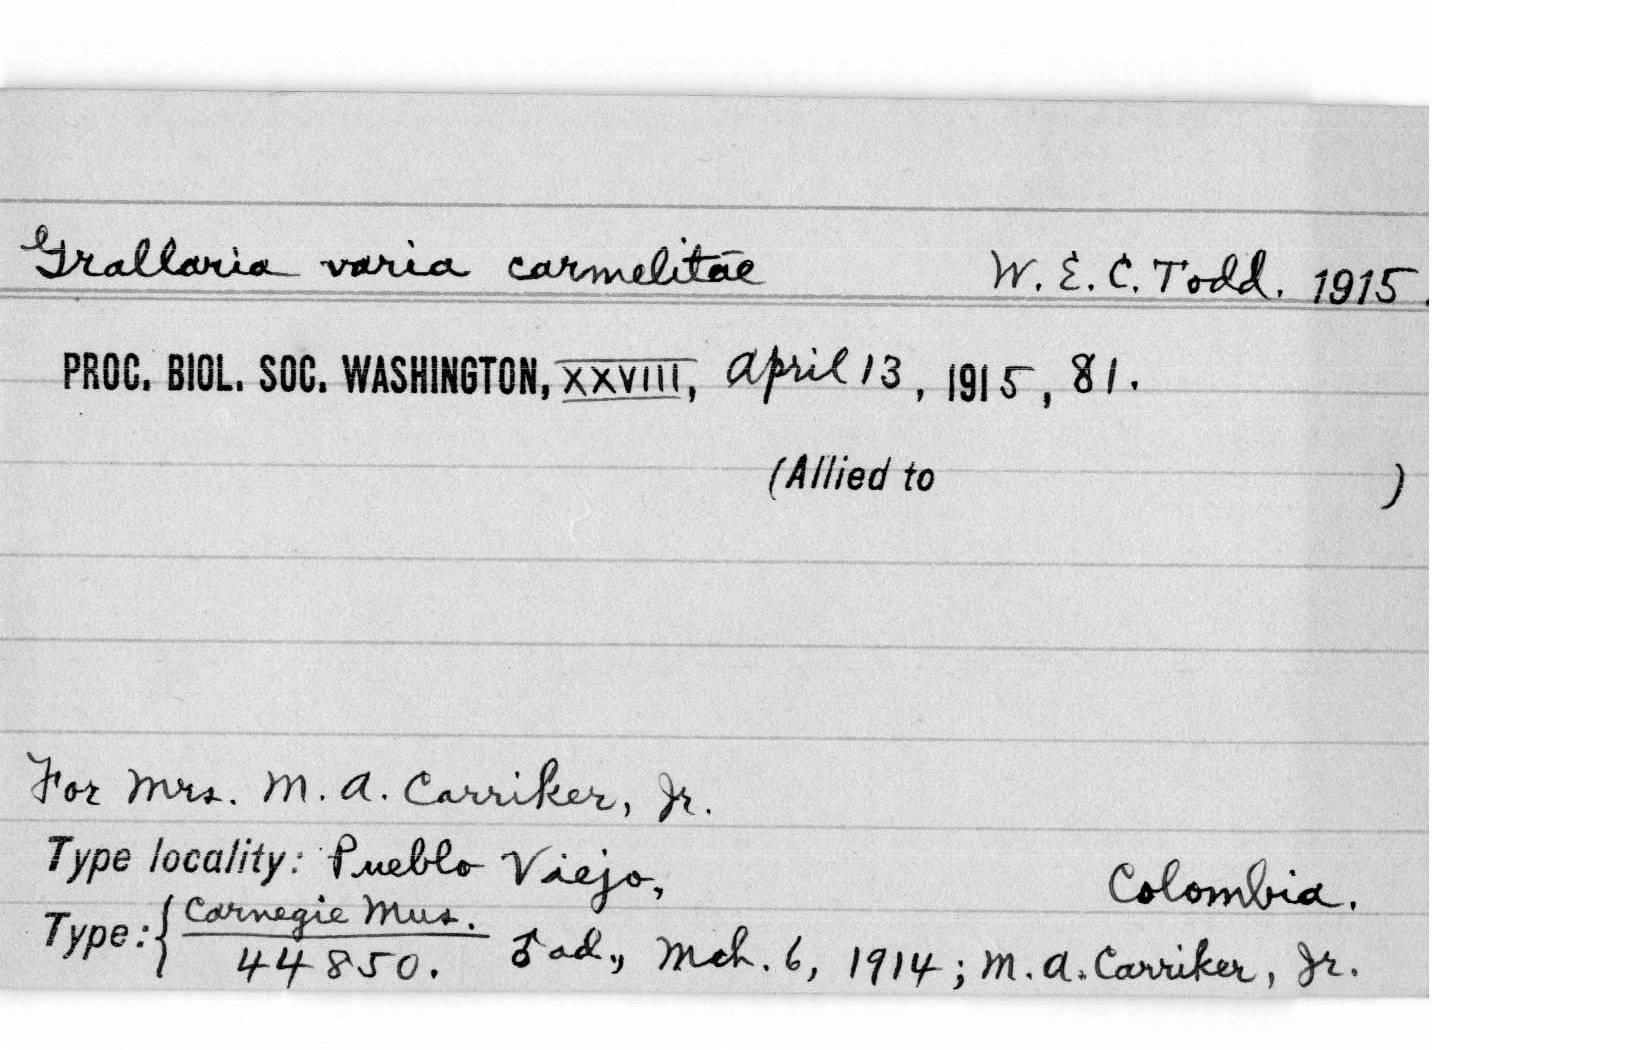 Grallaria varia carmelitae W. E. C. Todd. 1915.
PROC. BIOL. SOC. WASHINGTON, XXVIII, April 13, 1915, 81.
(Allied to )
For Mrs. M. A. Carriker, Jr.
Type locality: Pueblo Viejo, Colombia.
Type: { Carnegie Mus.
44850. ♂ ad., Mch. 6, 1914; M. A. Carriker, Jr.